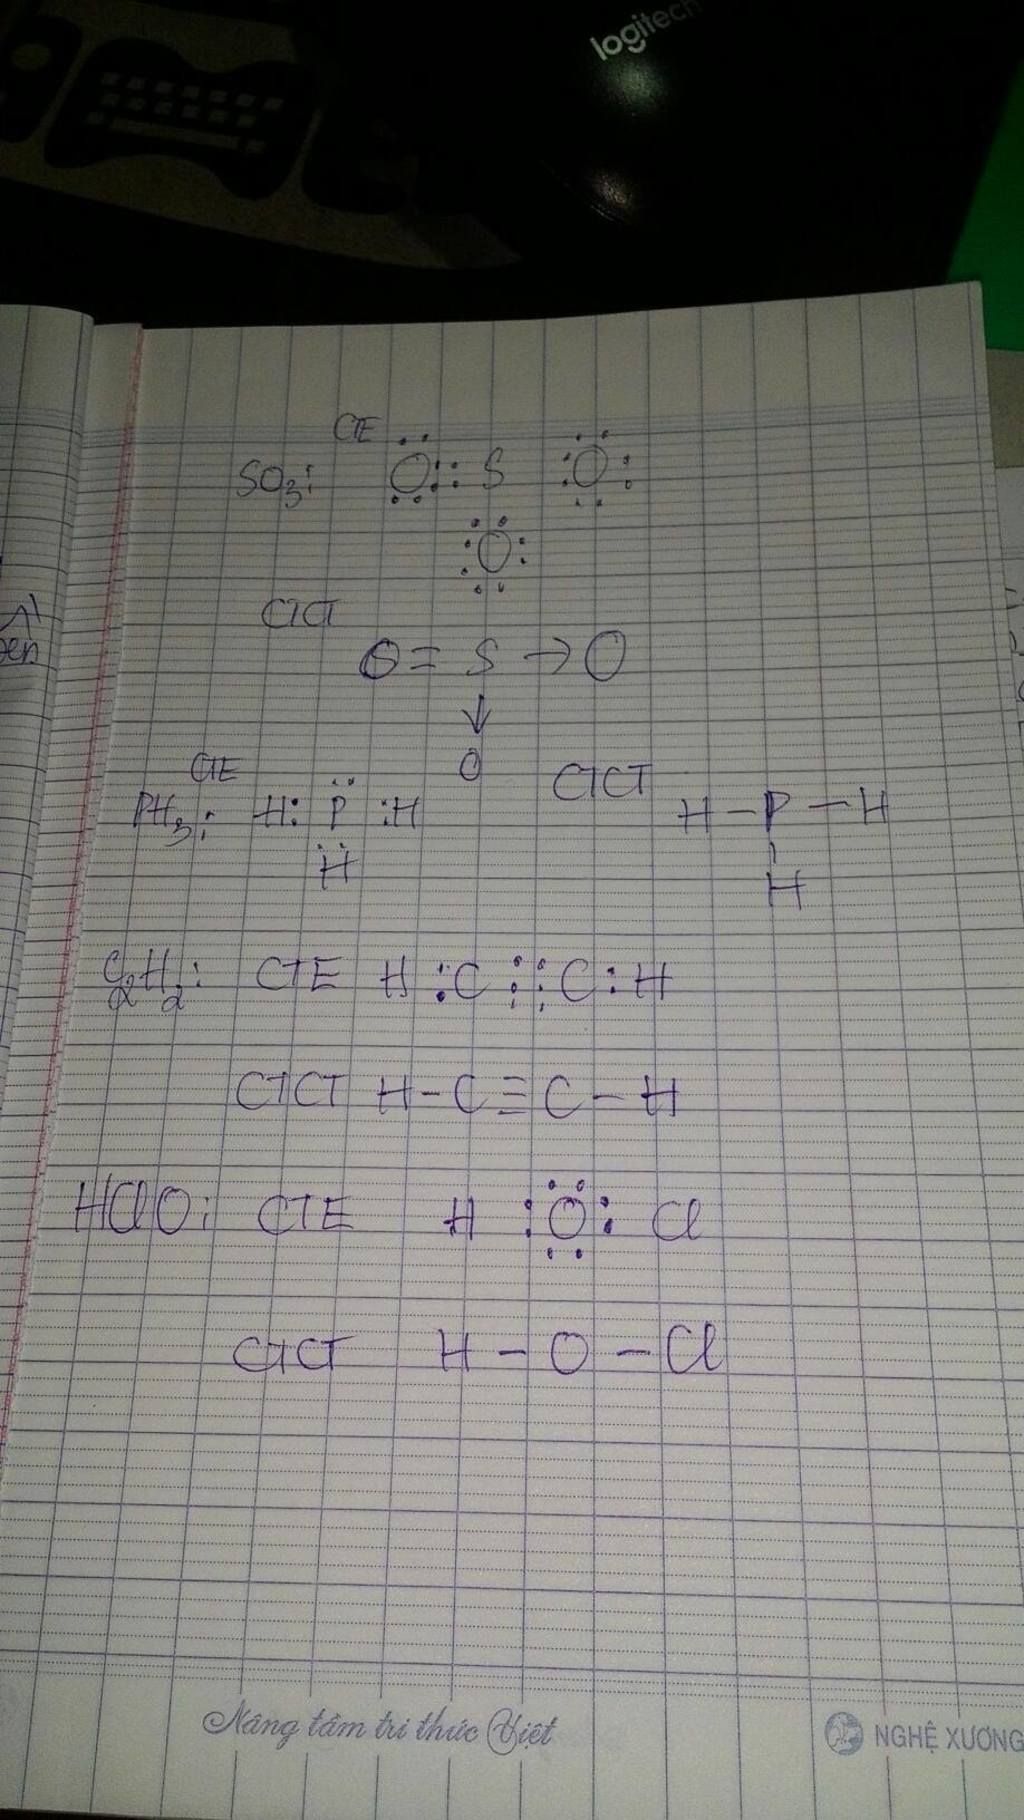 logitech
CTE
SO3: O :: S :O:
:O:
CTCT
O = S → O
↓
O
CTE
PH3: H: P :H
H
CTCT
H – P – H
H
C2H2: CTE H : C ⋮⋮ C : H
CTCT H – C ≡ C – H
HClO: CTE H :O: Cl
CTCT H – O – Cl
Nâng tầm tri thức Việt
NGHỆ XƯƠNG